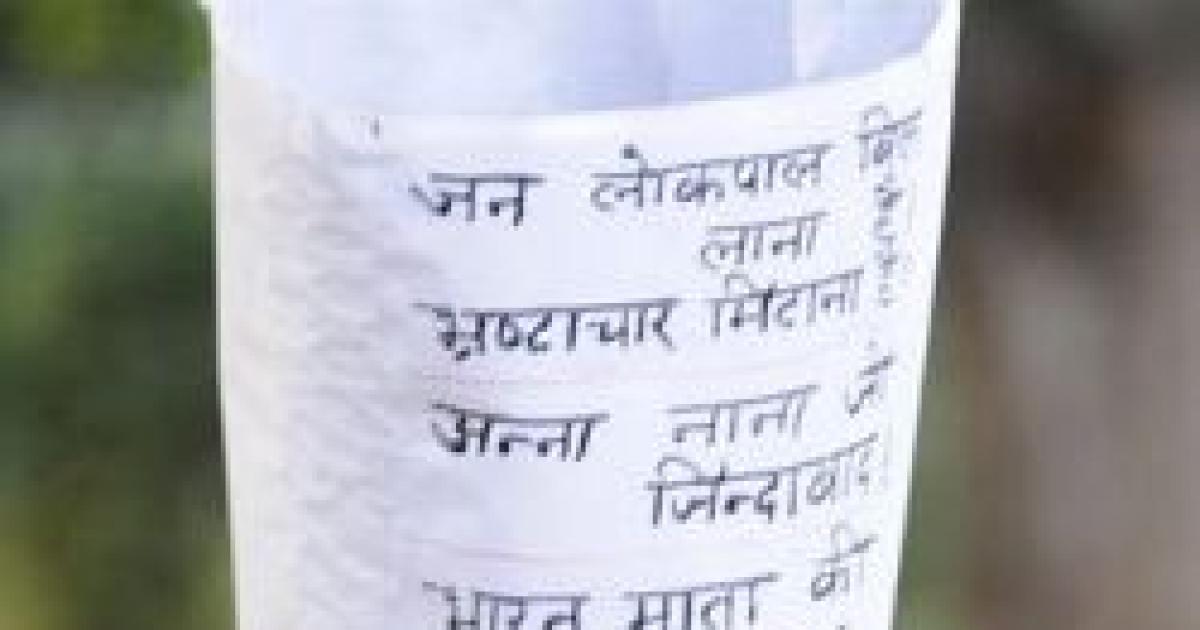 जन लोकपाल बिल
लाना
भ्रष्टाचार मिटाना
अन्ना नाना जी
जिन्दाबाद
भारत माता की